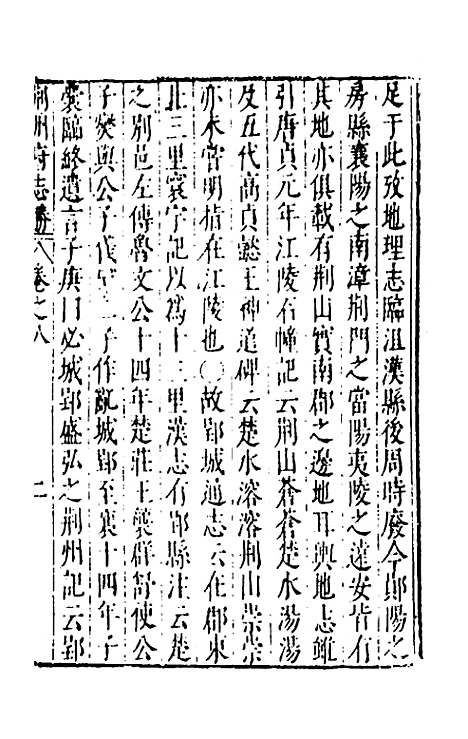 足于此攷地理志臨沮漢縣後周時廢今鄖陽之
房縣襄陽之南漳荆門之當陽夷陵之遠安皆有
其地亦俱載有荆山實南郡之邊地耳輿地志雖
引唐貞元年江陵石幢記云荆山蒼蒼楚水湯湯
及五代高貞懿王神道碑云楚水溶溶荆山崇崇
亦未嘗明指在江陵也〇故郢城通志云在郡東
北三里寰宇記以爲十二里漢志有郢縣注云楚
之别邑左傳魯文公十四年楚莊王襲群舒使公
子燮與公子儀守二子作亂城郢至襄十四年子
囊臨終遺言子庚曰必城郢盛弘之荆州記云郢
荆州府志 卷之八 二